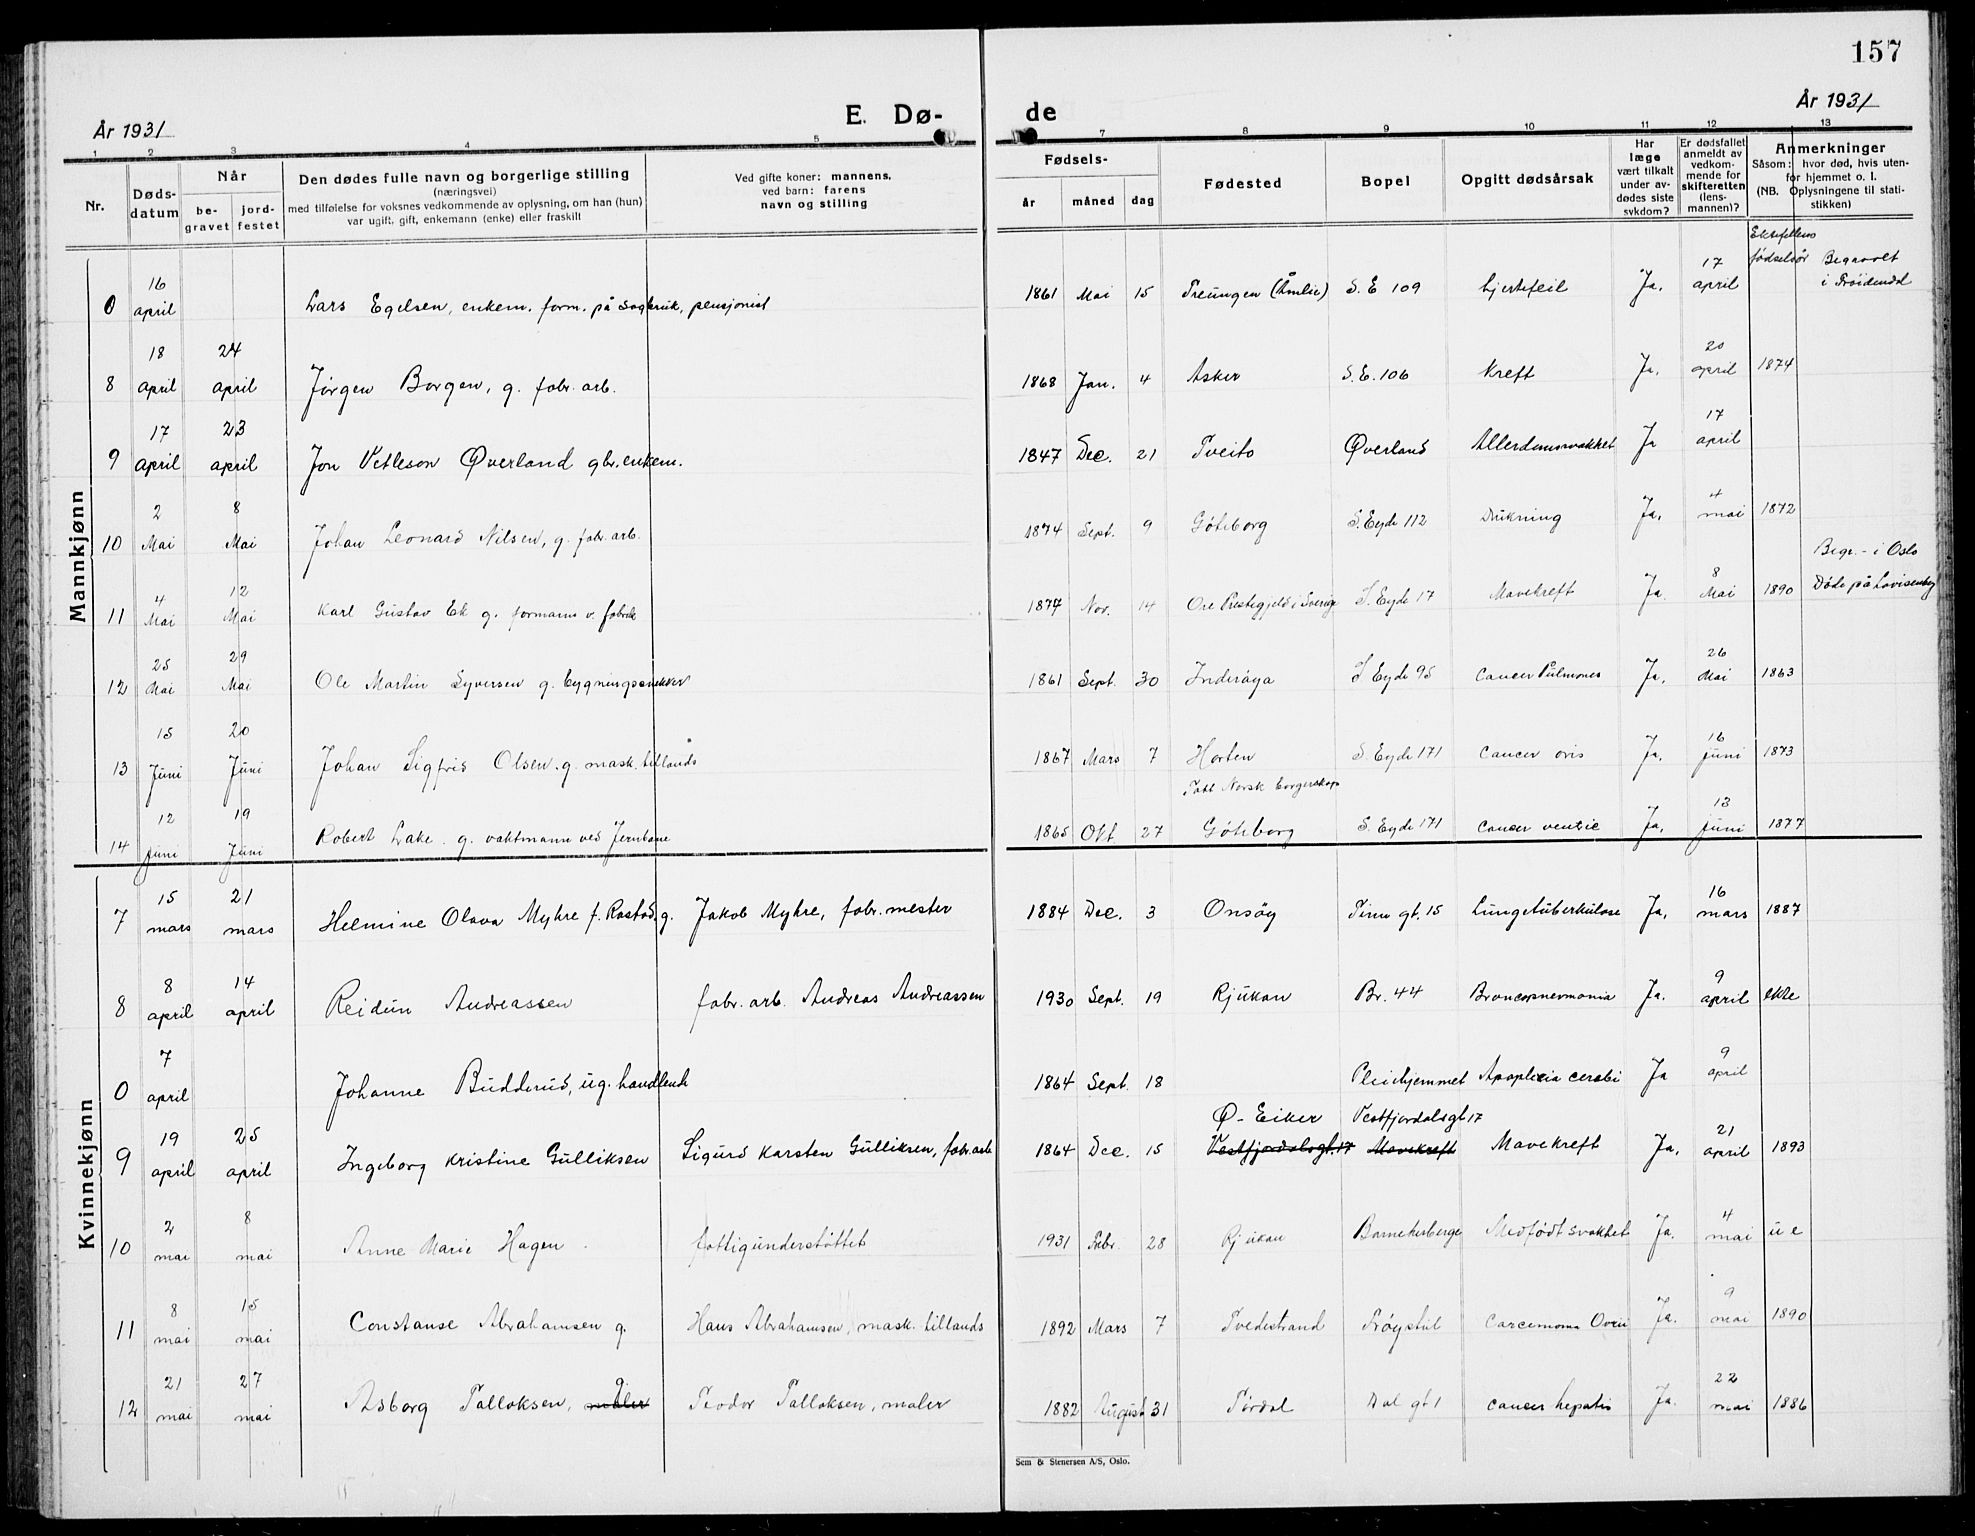 157
År 1931
E. Dø-
de
År 1931
1 2 3 4 5 7 8 9 10 11 12 13
Nr.
Døds-
datum
Når
be-
gravet
jord-
festet
Den dødes fulle navn og borgerlige stilling
(næringsvei)
med tilføielse for voksnes vedkommende av oplysning, om han (hun)
var ugift, gift, enkemann (enke) eller fraskilt
Ved gifte koner: mannens,
ved barn: farens
navn og stilling
Fødsels-
år måned dag
Fødested
Bopel
Opgitt dødsårsak
Har
læge
vært tilkalt
under av-
dødes siste
sykdom?
Er dødsfallet
anmeldt av
vedkom-
mende for
skifteretten
(lens-
mannen)?
Anmerkninger
Såsom: hvor død, hvis uten-
for hjemmet o. l.
(NB. Oplysningene til stati-
stikken)
Ektefellens
fødselsår
Mannkjønn
0 16 april Lars Egelsen, enkem. form. på sagbruk, pensjonist 1861 Mai 15 Treungen (Åmlie) S. E 109 hjertefeil Ja. 17 april Begravet
i Trøidendal
8 18 april 24 april Jørgen Borgen, g. fabr. arb. 1868 Jan. 4 Asker S. E. 106 Kreft Ja. 20 april 1874
9 17 april 23 april Jon Vetleson Øverland gbr. enkem. 1847 Dec. 21 Tveito Øverland Allerdomssvakhet Ja 17 april
10 2 Mai 8 Mai Johan Leonard Nilsen, g. fabr. arb. 1874 Sept. 9 Göteborg S. Eyde 112 Drukning Ja. 4 mai 1872
11 4 Mai 12 Mai Karl Gustav Ek g. formann v. fabrik 1877 Nov. 14 Ore Prestegjeld i Sverige S. Eyde 17 Mavekreft Ja. 8 Mai 1890 Begr. - i Oslo
Døde på Lovisenberg
12 25 Mai 29 Mai Ole Martin Syversen g. bygningssnekker 1861 Sept. 30 Inderøya S Eyde 95 Cancer Pulmones Ja. 26 Mai 1863
13 15 Juni 20 Juni Johan Sigfrid Olsen. g. mask. tillands 1867 Mars 7 Horten S Eyde 171 Cancer oris Ja. 16 juni 1873
Tatt Norsk borgerskap
14 12 Juni 19 Juni Robert Lake. g. vaktmann ved Jernbane 1865 Okt. 27 Göteborg S. Eyde 171 Cancer ventric Ja. 13 Juni 1877
Kvinnekjønn
7 15 mars 21 mars Helmine Olava Myhre f. Rostad, g. Jakob Myhre, fabr. mester 1884 Dec. 3 Onsøy Tinn gt. 15 Lungetuberkulose Ja. 16 mars 1887
8 8 april 14 april Reidun Andreassen fabr. arb. Andreas Andreassen 1930 Sept. 19 Rjukan Br. 44 Broncopnevmonia Ja. 9 april ekte
0 7 april Johanne Budderud, ug. handlende 1864 Sept. 18 Pleiehjemmet Apoplexia cerebi Ja 9 april
Ø - Eiker Vestfjordalsgt 17
9 19 april 25 april Ingeborg Kristine Gulliksen Sigurd Karsten Gulliksen, fabr. arb 1864 Dec. 15 Vestfjordalsgt. 17 Mavekreft Mavekreft Ja. 21 april 1893
10 2 mai 8 mai Anne Marie Hagen fattigunderstøttet 1931 Febr. 28 Rjukan Barneherberge Medfødt svakhet Ja. 4 mai u e
11 8 mai 15 mai Constanse Abrahamsen g. Hans Abrahamsen, mask. tillands 1892 Mars 7 Tvedestrand Frøystul Carcemoma Ovrii Ja. 9 mai 1890
12 21 mai 27 mai Asborg Talloksen, maler g. Teodor Talloksen, maler 1882 August 31 Tørdal Dal gt 1 cancer hepatis Ja. 22 mai 1886
Sem & Stenersen A/S, Oslo.